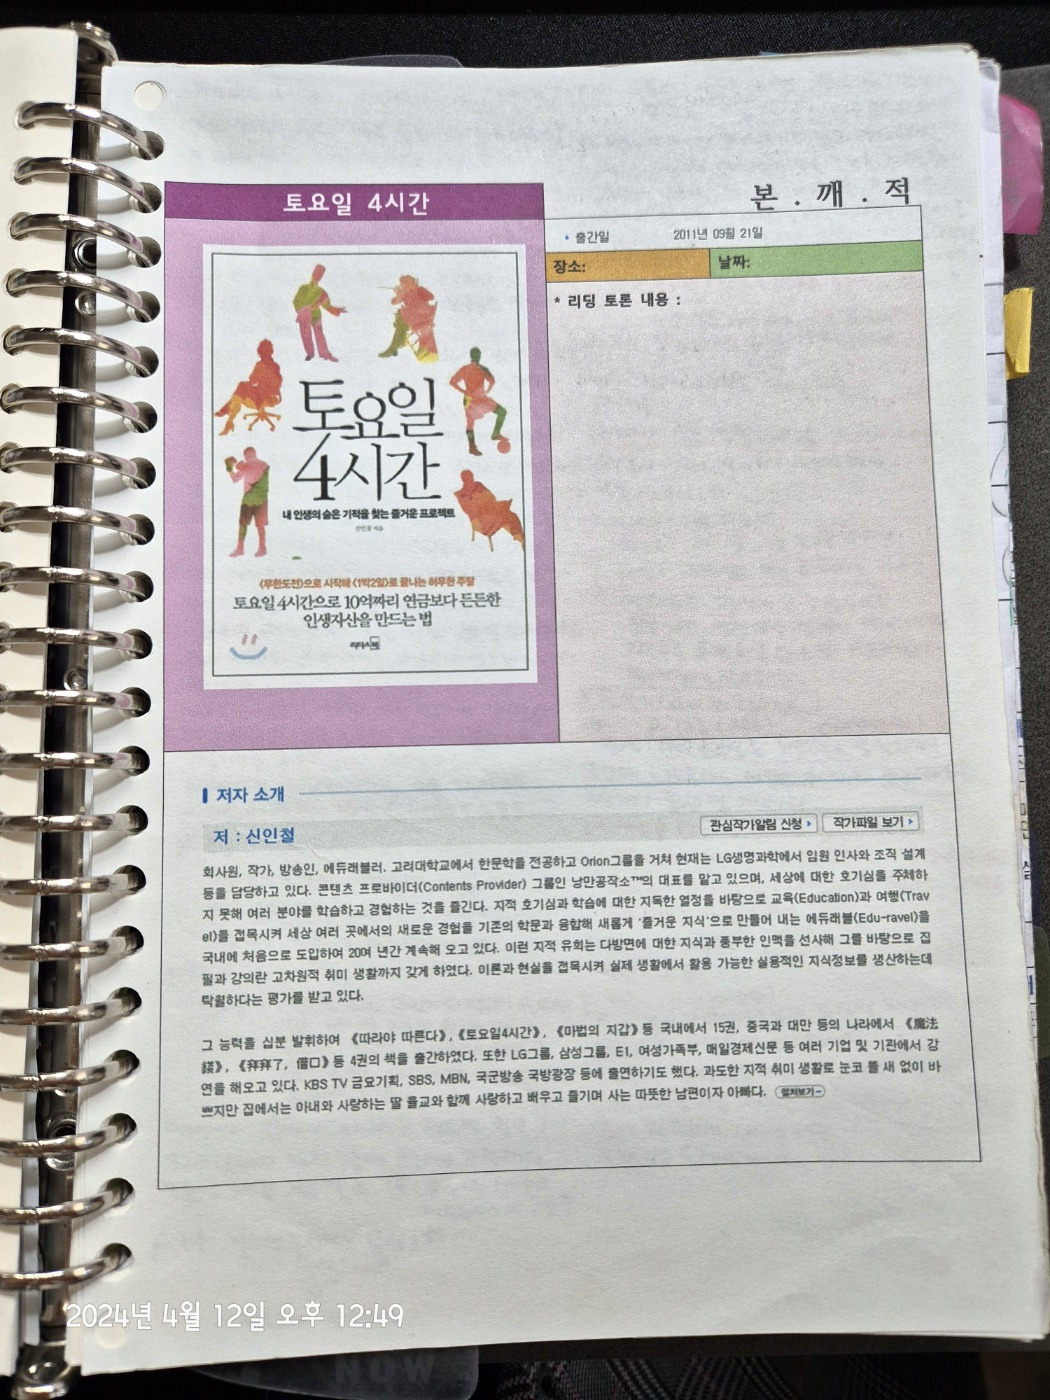 본 . 깨 . 적
토요일 4시간
• 출간일 2011년 09월 21일
장소: 날짜:
* 리딩 토론 내용 :
토요일
4시간
내 인생의 숨은 기적을 찾는 즐거운 프로젝트
신인철 지음
<무한도전>으로 시작해 <1박2일>로 끝나는 허무한 주말
토요일 4시간으로 10억짜리 연금보다 든든한
인생자산을 만드는 법
리더스북
저자 소개
저 : 신인철
관심작가알림 신청 작가파일 보기
회사원, 작가, 방송인, 에듀래블러. 고려대학교에서 한문학을 전공하고 Orion그룹을 거쳐 현재는 LG생명과학에서 임원 인사와 조직 설계
등을 담당하고 있다. 콘텐츠 프로바이더(Contents Provider) 그룹인 낭만공작소™의 대표를 맡고 있으며, 세상에 대한 호기심을 주체하
지 못해 여러 분야를 학습하고 경험하는 것을 즐긴다. 지적 호기심과 학습에 대한 지독한 열정을 바탕으로 교육(Education)과 여행(Trav
el)을 접목시켜 세상 여러 곳에서의 새로운 경험을 기존의 학문과 융합해 새롭게 '즐거운 지식'으로 만들어 내는 에듀래블(Edu-ravel)을
국내에 처음으로 도입하여 20여 년간 계속해 오고 있다. 이런 지적 유희는 다방면에 대한 지식과 풍부한 인맥을 선사해 그를 바탕으로 집
필과 강의란 고차원적 취미 생활까지 갖게 하였다. 이론과 현실을 접목시켜 실제 생활에서 활용 가능한 실용적인 지식정보를 생산하는데
탁월하다는 평가를 받고 있다.
그 능력을 십분 발휘하여 《따라야 따른다》, 《토요일4시간》, 《마법의 지갑》등 국내에서 15권, 중국과 대만 등의 나라에서 《魔法
錢》, 《拜拜了, 借口》등 4권의 책을 출간하였다. 또한 LG그룹, 삼성그룹, E1, 여성가족부, 매일경제신문 등 여러 기업 및 기관에서 강
연을 해오고 있다. KBS TV 금요기획, SBS, MBN, 국군방송 국방광장 등에 출연하기도 했다. 과도한 지적 취미 생활로 눈코 뜰 새 없이 바
쁘지만 집에서는 아내와 사랑하는 딸 율교와 함께 사랑하고 배우고 즐기며 사는 따뜻한 남편이자 아빠다. 펼쳐보기
2024년 4월 12일 오후 12:49
NOW